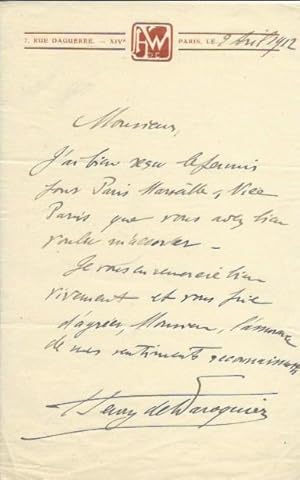 7, RUE DAGUERRE. — XIVᵉ PARIS, LE 9 Avril 1912
HW
Monsieur,
J'ai bien reçu le permis
pour Paris Marseille, Nice
Paris que vous avez bien
voulu m'accorder —
Je vous en remercie bien
vivement et vous prie
d'agréer, Monsieur, l'assurance
de mes sentiments reconnaissants
Henry de Waroquier